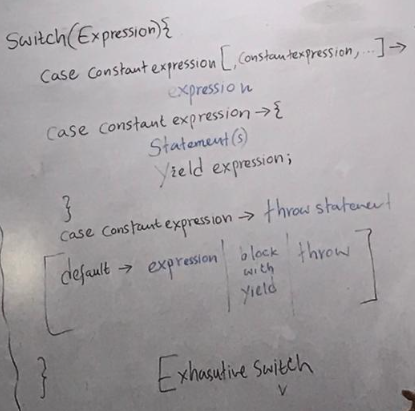 Switch(Expression){
case Constant expression[,constantexpression, ...]→
expression
case constant expression→{
Statement(s)
yield expression;
}
case constant expression → throw statement
[default → expression | block with yield | throw]
}
Exhasutive switch